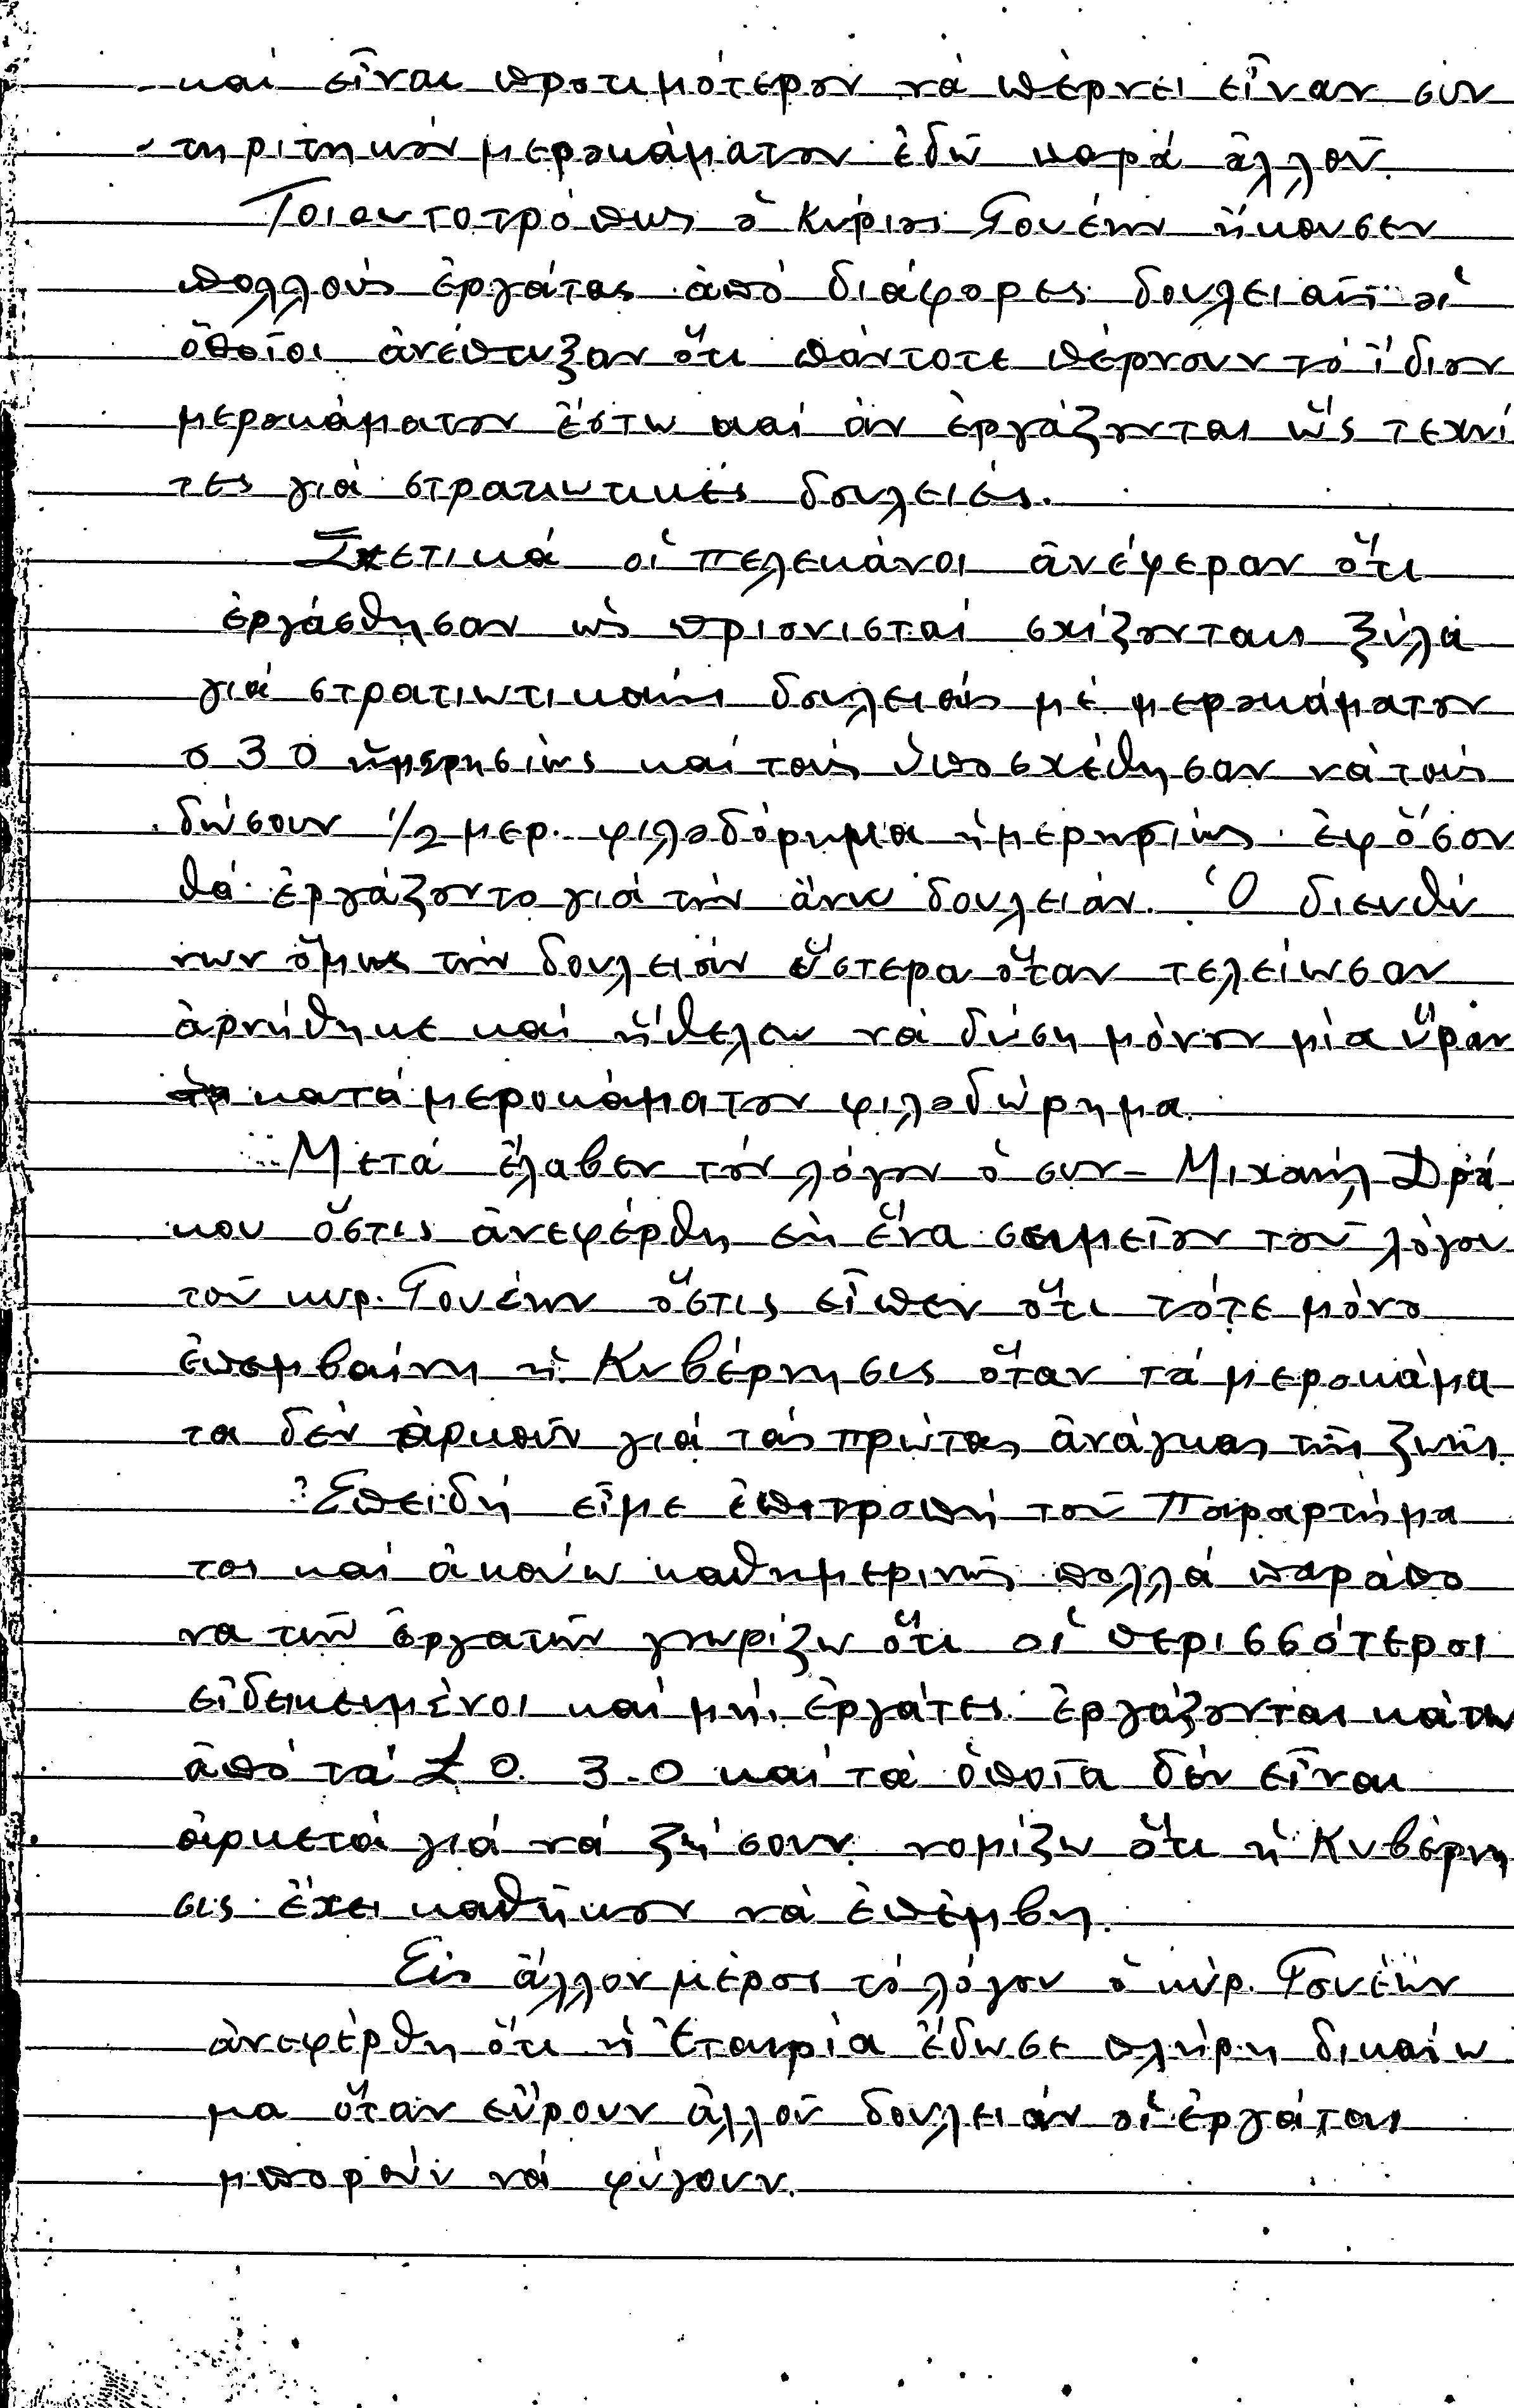 καί εἶναι προτιμότερον νά πέρνει εἶναν συν
τηριτηκόν μεροκάματον ἐδῶ παρά ἀλλοῦ.
Τοιουτοτρόπως ὁ Κύριος Γουέην ἤκουσεν
πολλούς ἐργάτας ἀπό διάφορες δουλειάς οἱ
ὁποῖοι ἀνέπτυξαν ὅτι πάντοτε πέρνουν τό ἴδιον
μεροκάματον ἔστω καί ἄν ἐργάζονται ὥς τεχνί
τες γιά στρατιωτικές δουλειές.
Σχετικά οἱ πελεκάνοι ἀνέφεραν ὅτι
ἐργάσθησαν ὡς πριονισταί σχίζονταις ξύλα
γιά στρατιωτικαίς δουλειάς μέ μεροκάματον
σ 30 ἡμερησίως καί τούς ὑποσχέθησαν νά τούς
δώσουν 1/2 μερ. φιλοδόρημα ἡμερησίως ἐφ ὅσον
θά ἐργάζοντο γιά τήν ἄνω δουλειάν. Ὁ διευθύ
νων ὅμως τήν δουλειάν ὕστερα ὅταν τελείωσαν
ἀρνήθηκε καί ἤθελεν νά δώση μόνον μία ὥραν
κατά μεροκάματον φιλοδώρημα.
Μετά ἔλαβεν τόν λόγον ὁ συν- Μιχαήλ Δρά
κου ὅστις ἀνεφέρθη εἰς ἕνα σημεῖον τοῦ λόγου
τοῦ κυρ. Γουέην ὅστις εἶπεν ὅτι τότε μόνο
ἐπεμβαίνη ἡ Κυβέρνησις ὅταν τά μεροκάμα
τα δέν ἀρκοῦν γιά τάς πρώτας ἀνάγκας τῆς ζωῆς.
Ἐπειδή εἶμε ἐπιτροπή τοῦ Παραρτήμα
τος καί ἀκούω καθημερινῶς πολλά παράπο
να τῶν ἐργατῶν γνωρίζω ὅτι οἱ περισσότεροι
εἰδεικειμένοι καί μή, ἐργάτες ἐργάζονται κάτω
ἀπό τά £ 0. 3-0 καί τά ὁποῖα δέν εἶναι
ἀρκετά γιά νά ζήσουν νομίζω ὅτι ἡ Κυβέρνη
σις ἔχει καθῆκον νά ἐπέμβη.
Εἰς ἄλλον μέρος τό λόγον ὁ κύρ. Γουέην
ἀνεφέρθη ὅτι ἡ Ἑταιρία ἔδωσε πλήρη δικαίω
μα ὅταν εὕρουν ἀλλοῦ δουλειάν οἱ ἐργάται
μποροῦν νά φύγουν.